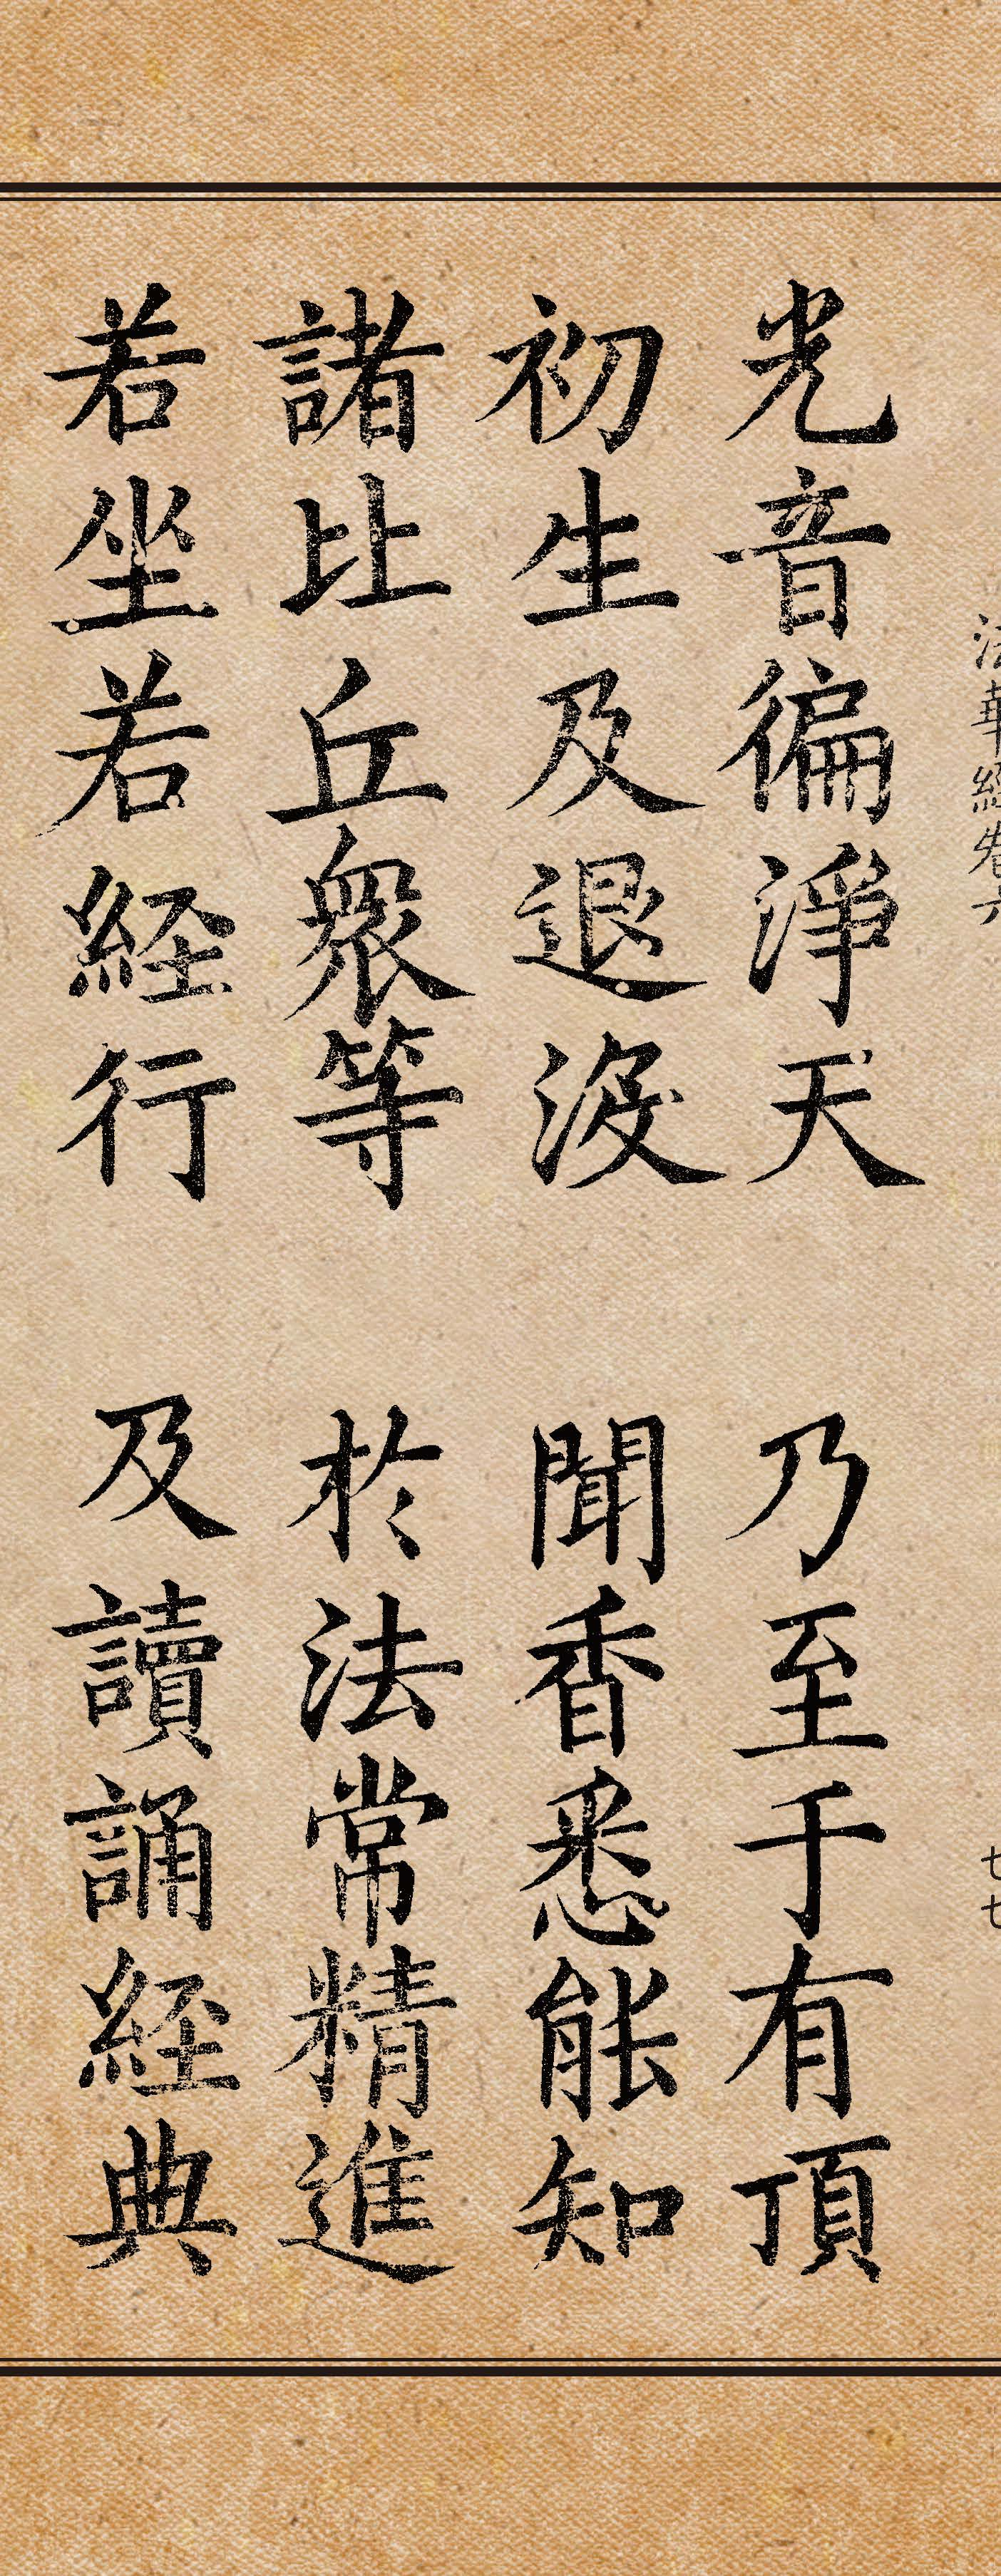 法華経巻六
七七
光音徧淨天 乃至于有頂
初生及退沒 聞香悉能知
諸比丘衆等 於法常精進
若坐若経行 及讀誦経典